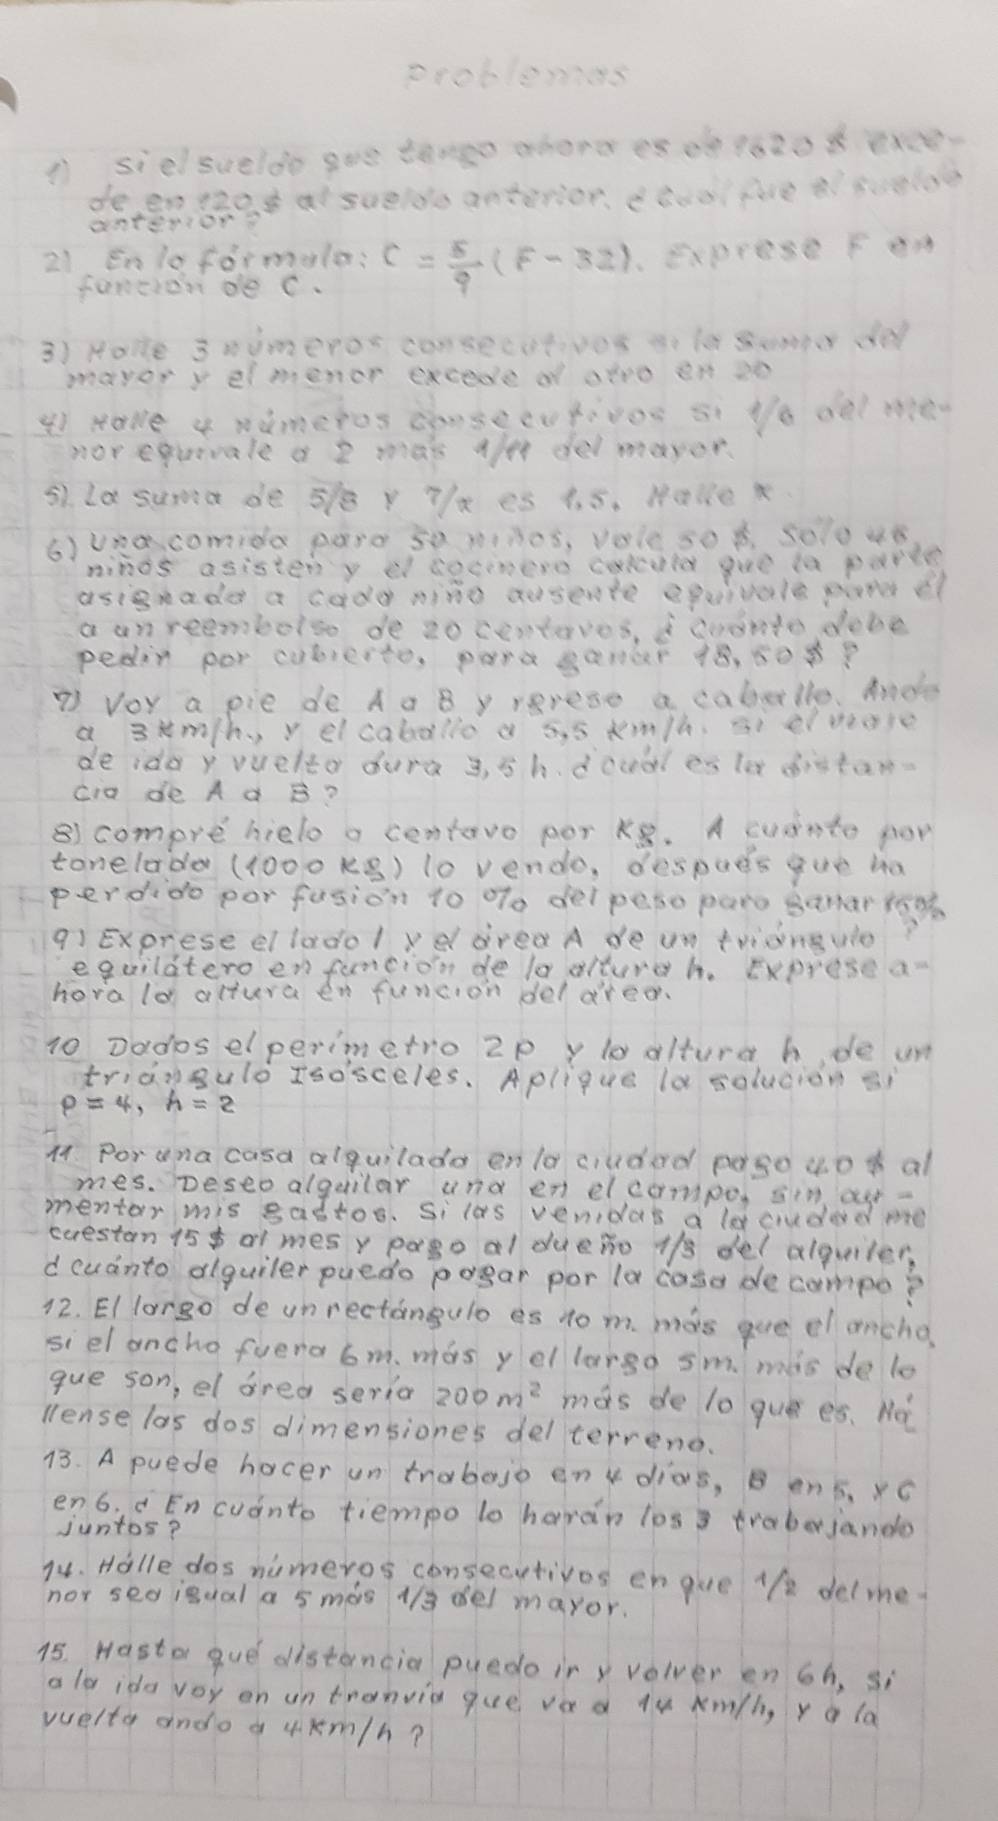 Problemas
1) Si el sueldo que tengo ahora es de 1620 $ exce-
de en 120 $ al sueldo anterior. ¿cuál fue el sueldo
anterior?
2) En la fórmula: C = 5/9 (F - 32). Exprese F en
función de C.
3) Halle 3 números consecutivos si la suma del
mayor y el menor excede al otro en 20
4) Halle 4 números consecutivos si 1/6 del me-
nor equivale a 2 más 1/11 del mayor.
5). La suma de 5/8 y 7/x es 1,5. Halle x.
6) Una comida para 50 niños, vale 50 $. Solo 48
niños asisten y el cocinero calcula que la parte
asignada a cada niño ausente equivale para él
a un reembolso de 20 centavos, ¿ cuánto debe
pedir por cubierto, para ganar 18,50 $ ?
7) Voy a pie de A a B y rgreso a caballo. Ando
a 3 km/h., y el caballo a 5,5 km/h. si el viaje
de ida y vuelta dura 3,5 h. ¿cuál es la distan-
cia de A a B?
8) compré hielo a centavo por Kg. A cuánto por
tonelada (1000 Kg) lo vendo, después que ha
perdido por fusión 10 % del peso para ganar 150%
9) Exprese el lado l y el área A de un triángulo ?
equilátero en función de la altura h. Exprese a-
hora la altura en función del área.
10 Dados el perímetro 2p y la altura h, de un
triángulo Isósceles. Aplique la solución si
p = 4, h = 2
11. Por una casa alquilada en la ciudad pago 40 $ al
mes. Deseo alquilar una en el campo, sin au-
mentar mis gastos. Si las venidas a la ciudad me
cuestan 15 $ al mes y pago al dueño 1/3 del alquiler,
¿cuánto alquiler puedo pagar por la casa de campo?
12. El largo de un rectángulo es 10 m. más que el ancho.
si el ancho fuera 6 m. más y el largo 5 m. más de lo
que son, el área sería 200 m² más de lo que es. Há
llense las dos dimensiones del terreno.
13. A puede hacer un trabajo en 4 días, B en 5, y C
en 6. ¿ En cuánto tiempo lo harán los 3 trabajando
juntos?
14. Hálle dos números consecutivos en que 1/2 del me-
nor sea igual a 5 más 1/3 del mayor.
15. Hasta qué distancia puedo ir y volver en 6h, si
a la ida voy en un tranvía que va a 14 km/h, y a la
vuelta ando a 4 km/h ?